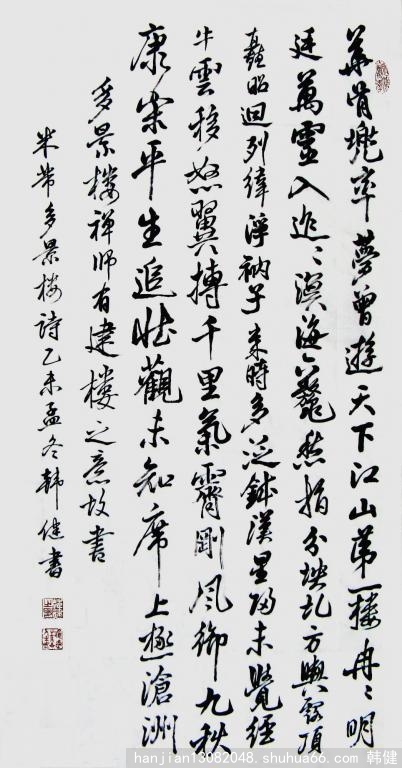 華胥兜率夢曾遊天下江山第一樓冉々明
廷萬靈入迢々溟海六鼇愁指分坱圠方輿露頂
矗昭迴列緯浮衲子来時多泛鉢漢星歸未覺經
牛雲移怒翼摶千里氣霽剛風御九秋
康樂平生追壯觀未知席上極滄洲
多景楼禅师有建楼之意故書
米芾多景楼詩乙未孟冬韓健書
hanjian13082048.shuhua66.com 韩健